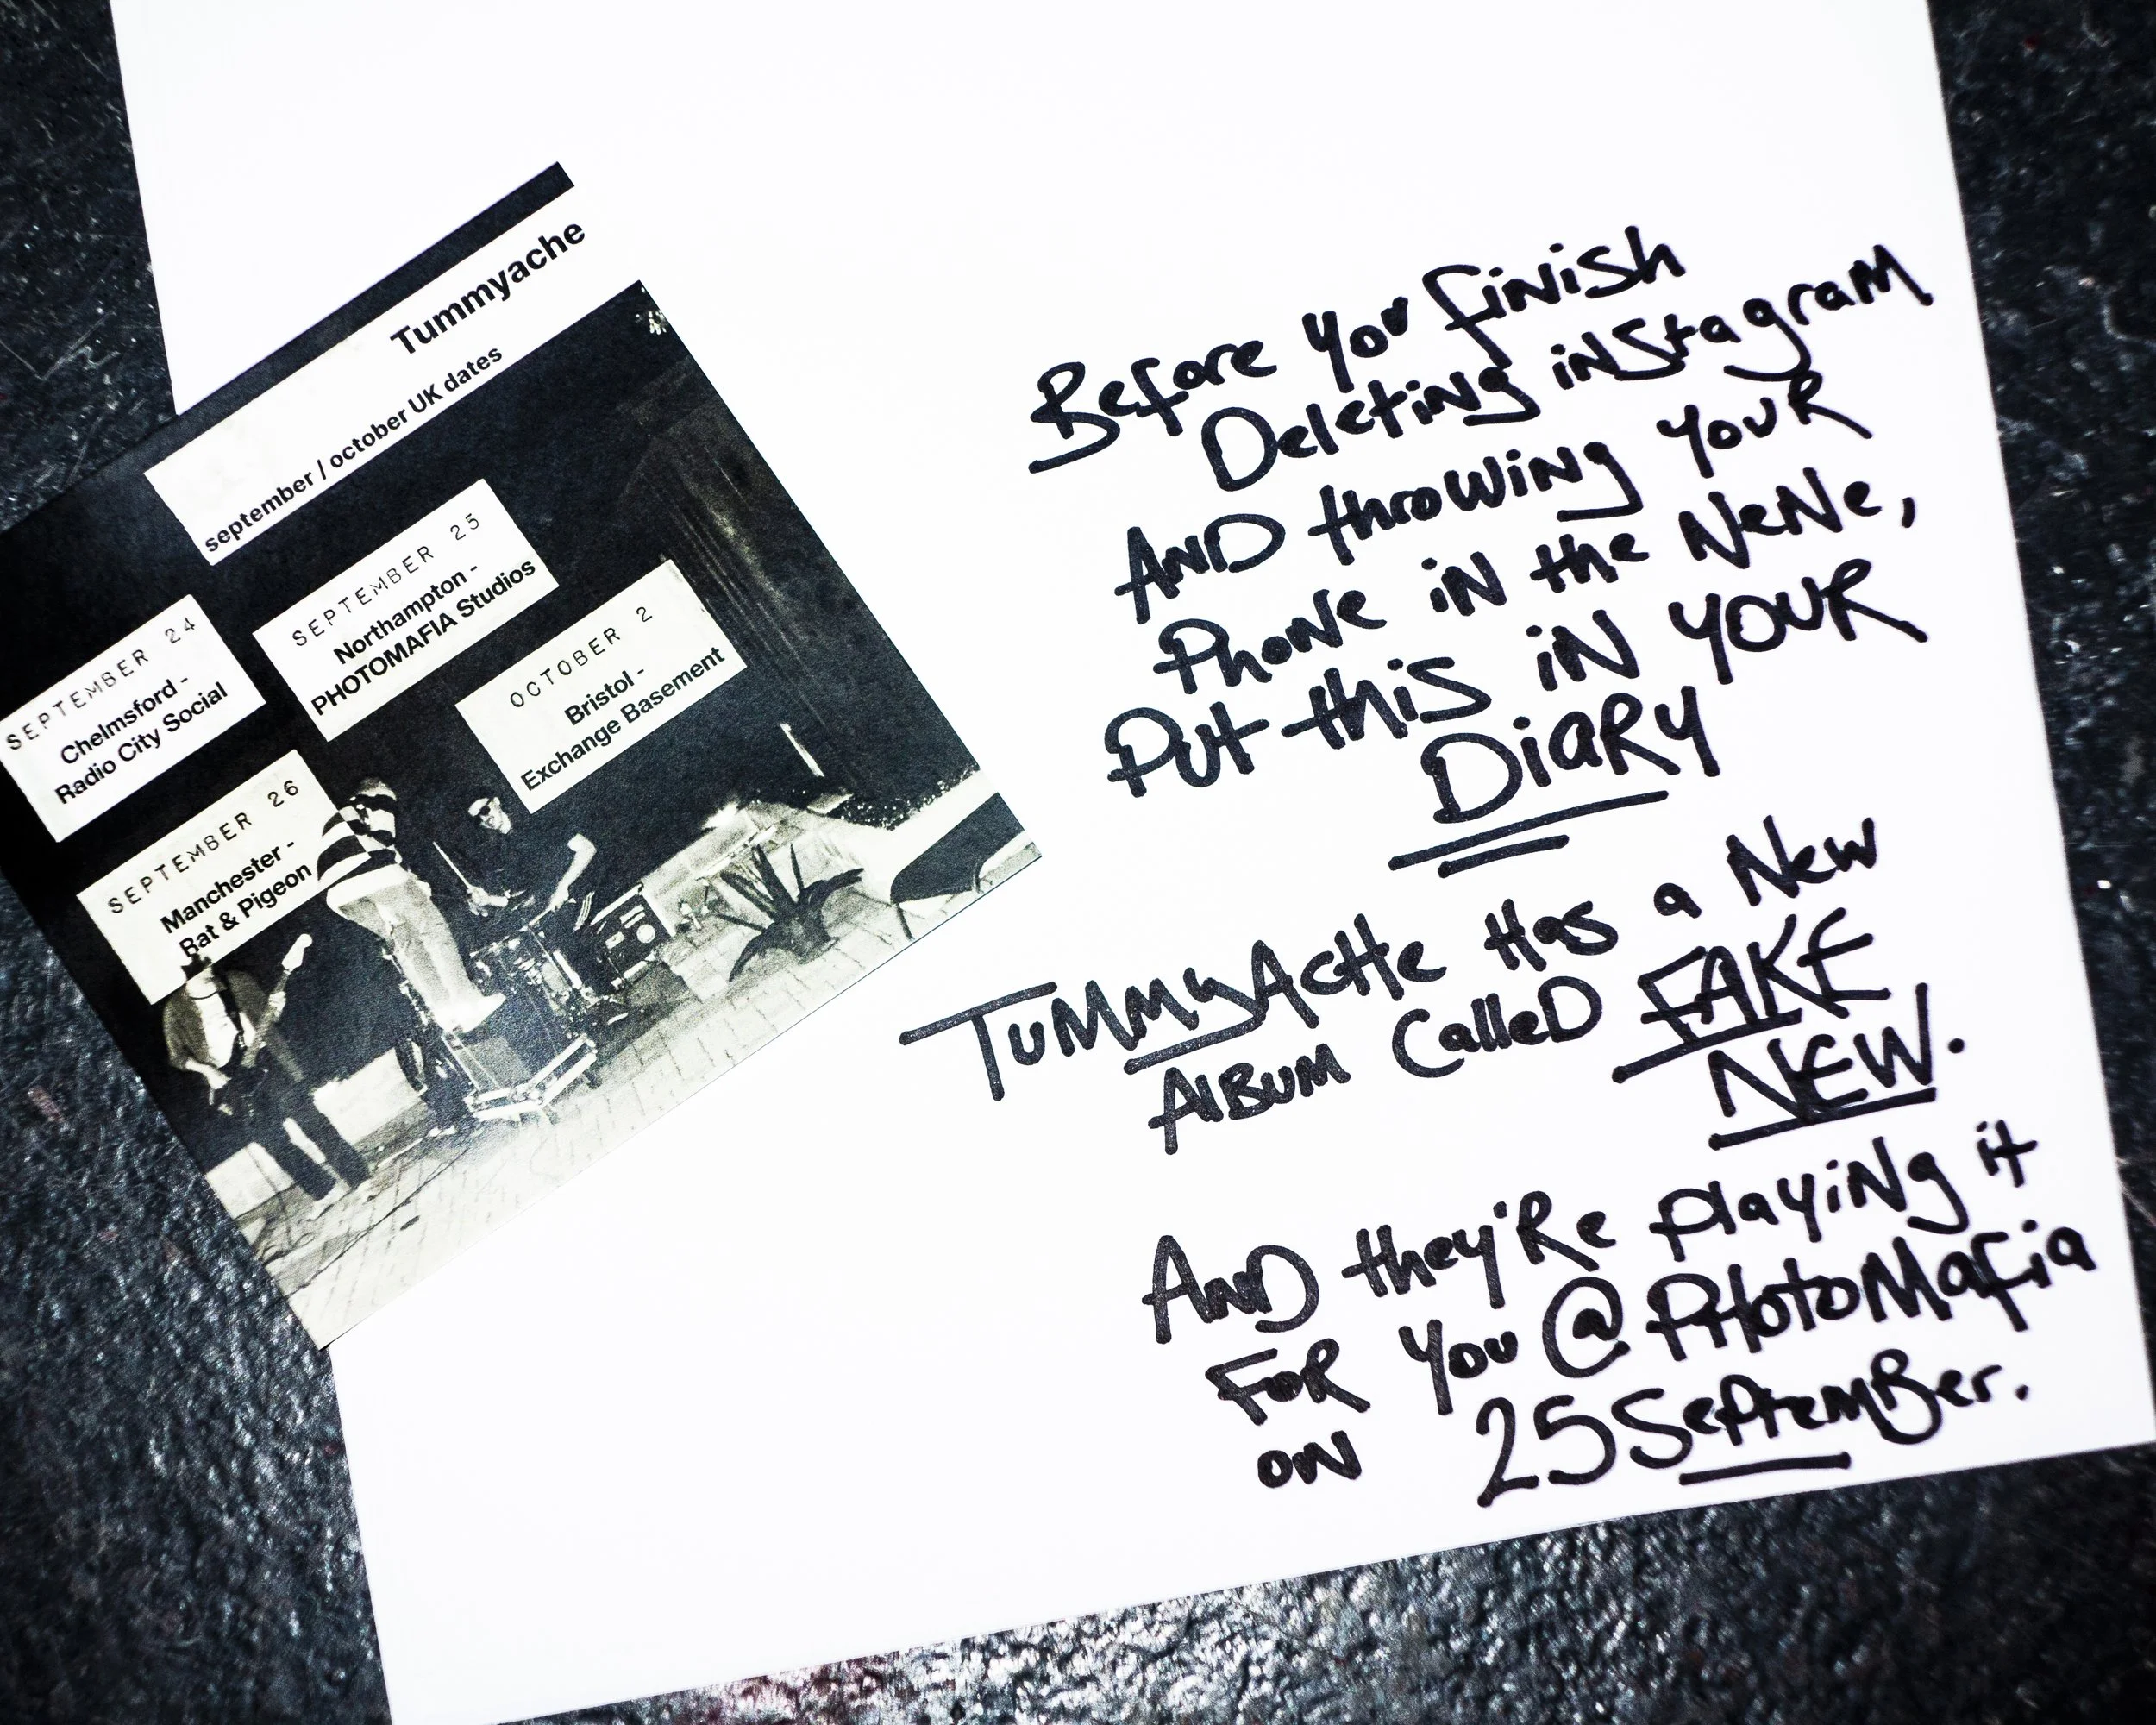 Tummyache
september / october UK dates
SEPTEMBER 24
Chelmsford -
Radio City Social
SEPTEMBER 25
Northampton -
PHOTOMAFIA Studios
OCTOBER 2
Bristol -
Exchange Basement
SEPTEMBER 26
Manchester -
Rat & Pigeon
Before you finish
Deleting instagram
AND throwing your
Phone in the Nene,
Put this in your
Diary
Tummyache Has a New
Album Called FAKE
NEW.
And they're playing it
For you @ PHotoMafia
on 25 September.